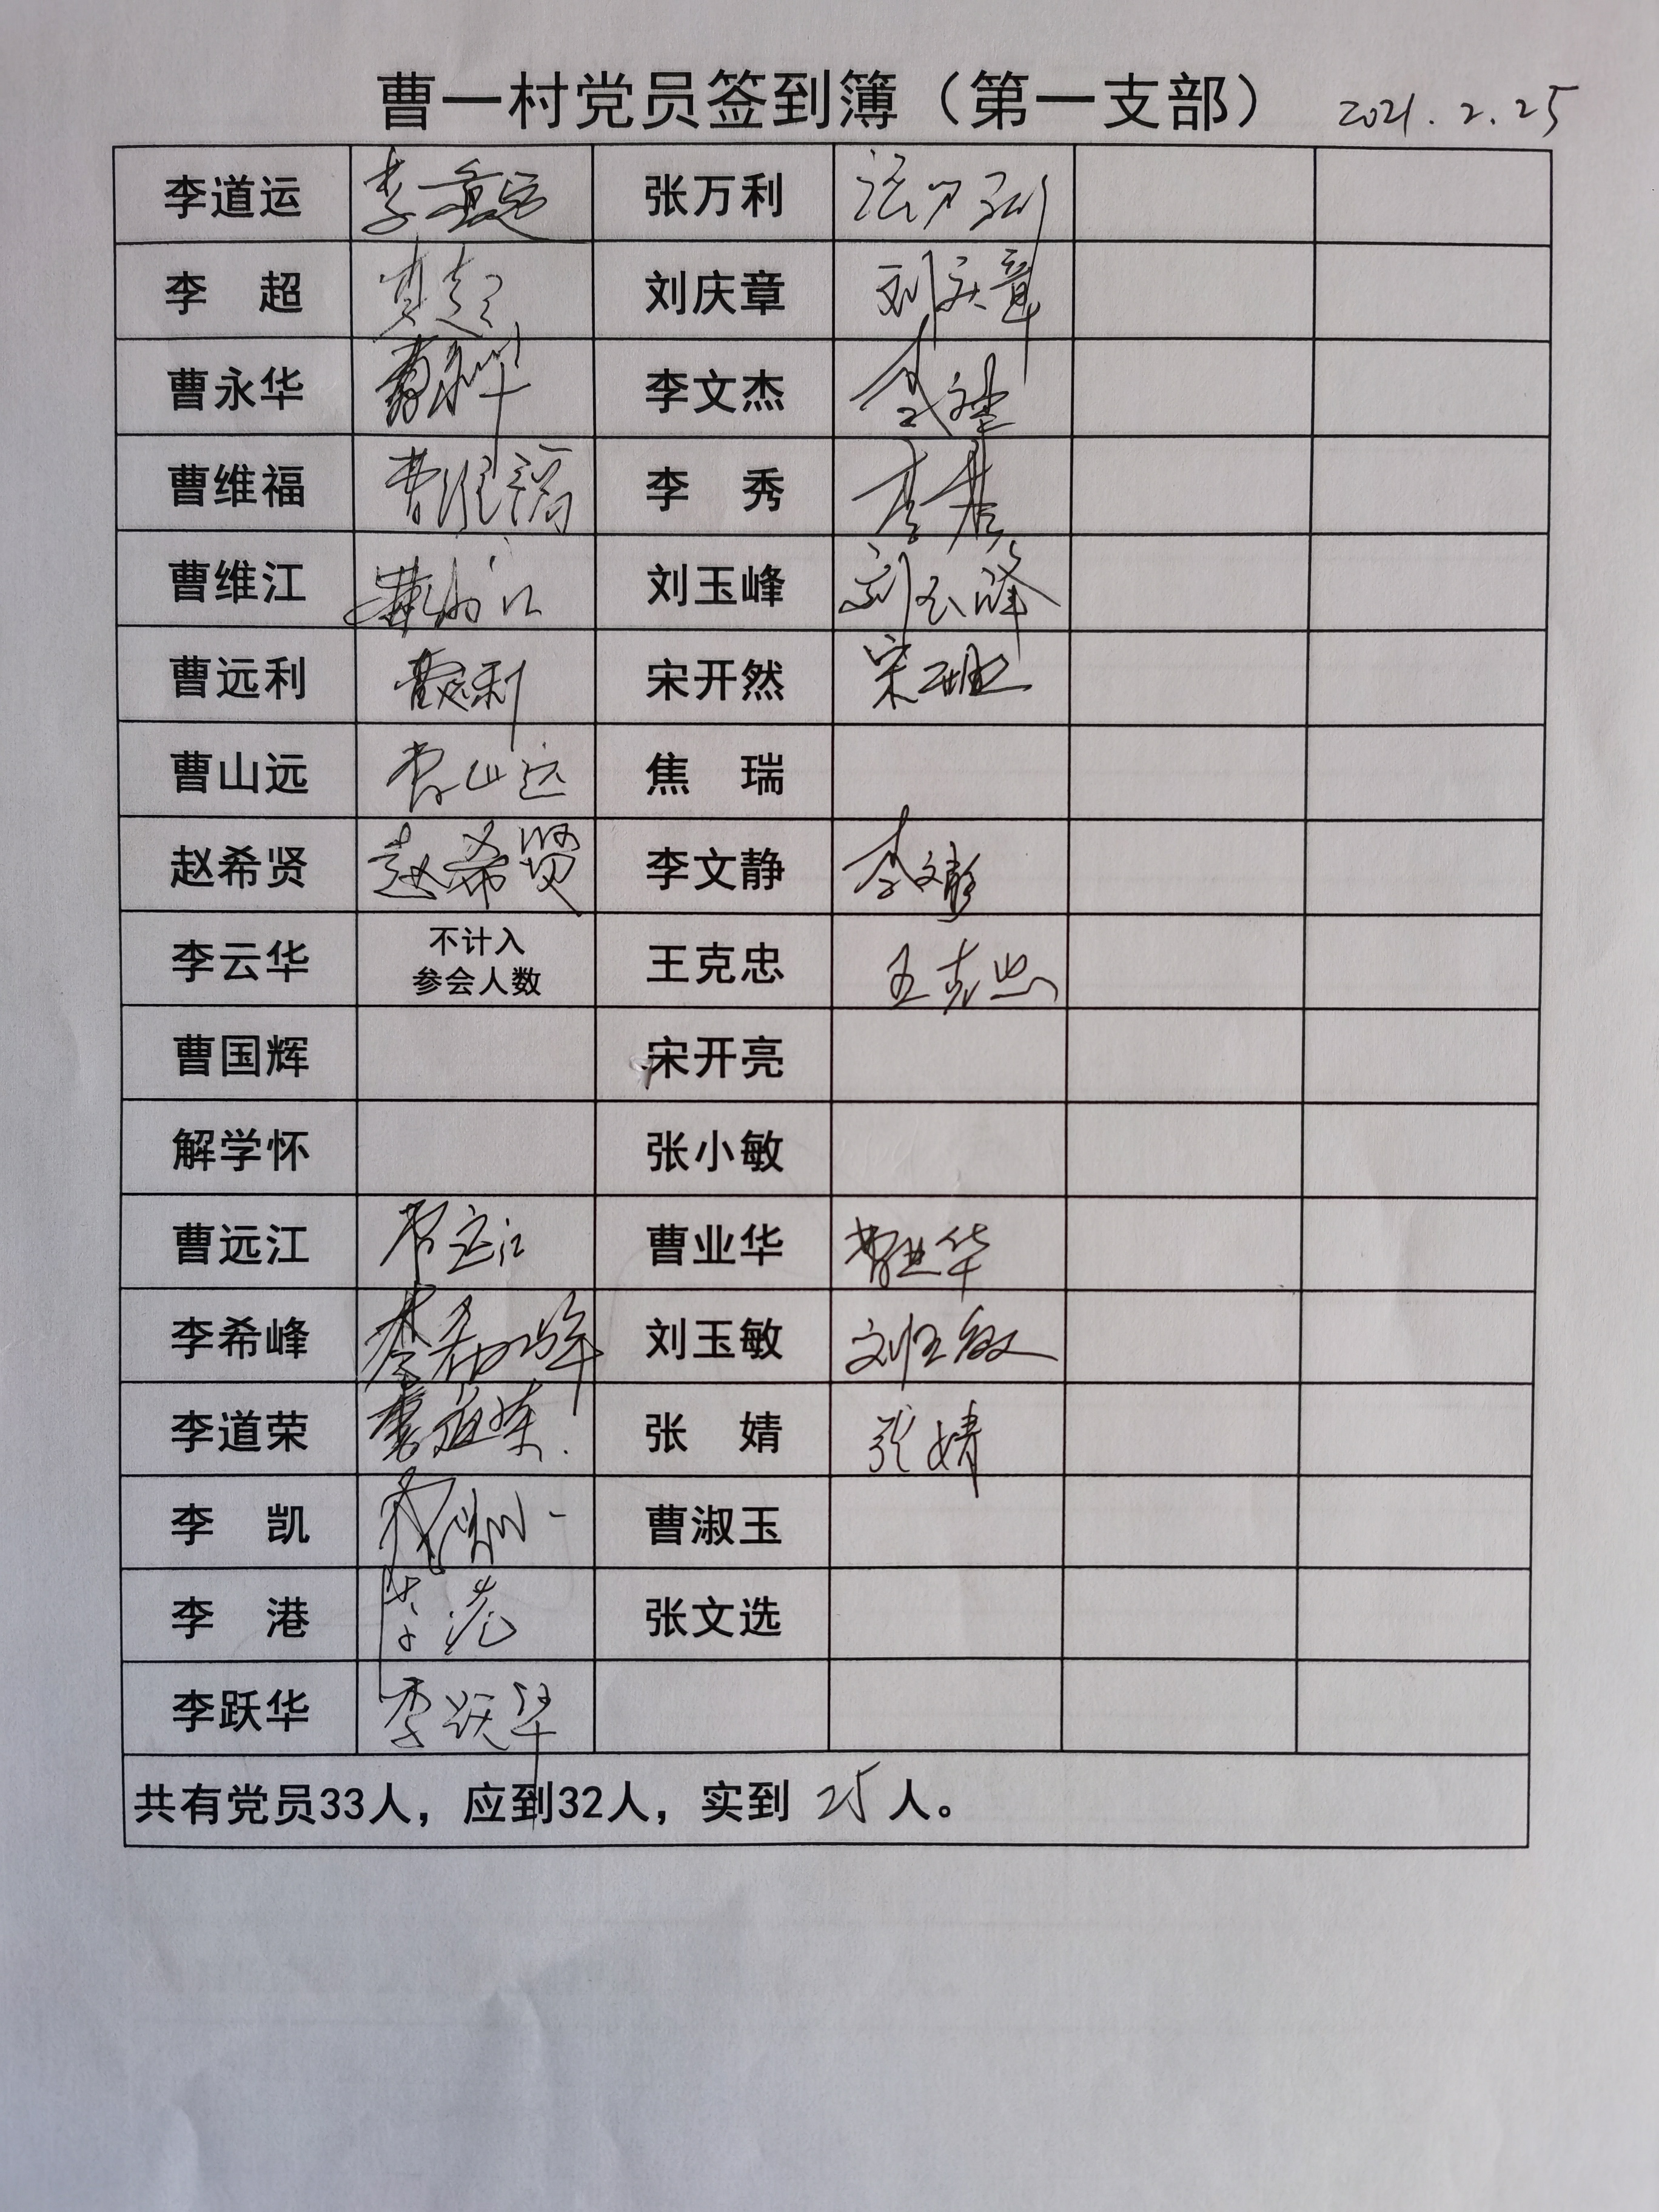 曹一村党员签到簿（第一支部） 2021.2.25
李道运 李道运 张万利 张万利
李 超 李超 刘庆章 刘庆章
曹永华 曹永华 李文杰 李文杰
曹维福 曹维福 李 秀 李秀
曹维江 曹维江 刘玉峰 刘玉峰
曹远利 曹远利 宋开然 宋开然
曹山远 曹山远 焦 瑞
赵希贤 赵希贤 李文静 李文静
李云华 不计入 王克忠 王克忠
参会人数
曹国辉 宋开亮
解学怀 张小敏
曹远江 曹远江 曹业华 曹业华
李希峰 李希峰 刘玉敏 刘玉敏
李道荣 李道荣 张 婧 张婧
李 凯 李凯 曹淑玉
李 港 李港 张文选
李跃华 李跃华
共有党员33人，应到32人，实到 25 人。